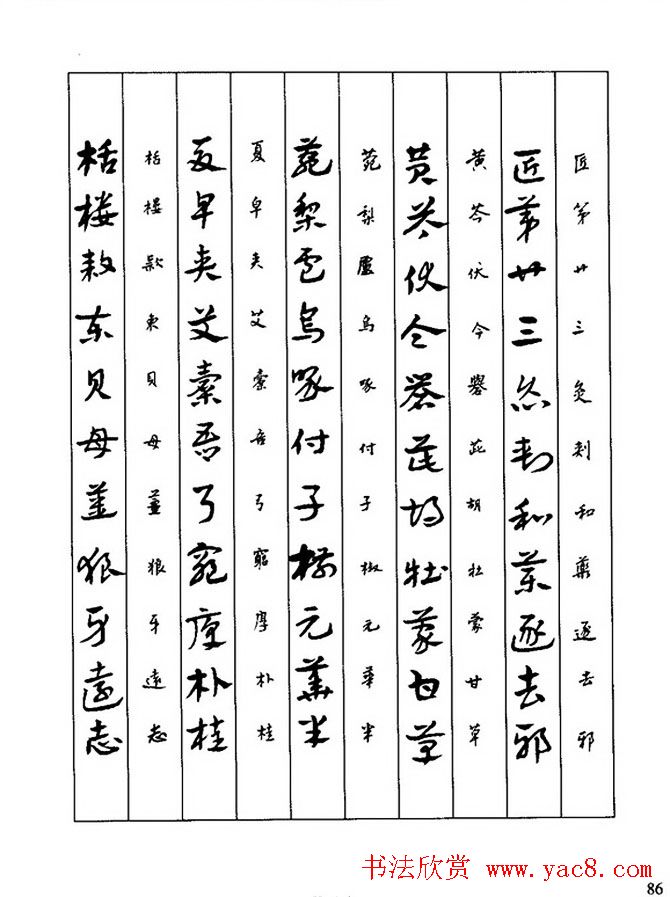 匠第廿三灸刺和藥逐去邪
匠第廿三灸刺和藥逐去邪
黄芩伏今礜茈胡牡蒙甘草
黄芩伏令礜茈胡牡蒙甘草
菀梨盧烏啄付子椒元華半
菀梨盧烏啄付子椒元華半
夏皁夹艾橐吾弓窮厚朴桂
夏皁夹艾橐吾弓窮厚朴桂
栝楼款東貝母薑狼牙遠志
栝楼款東貝母薑狼牙遠志
书法欣赏 www.yac8.com
86